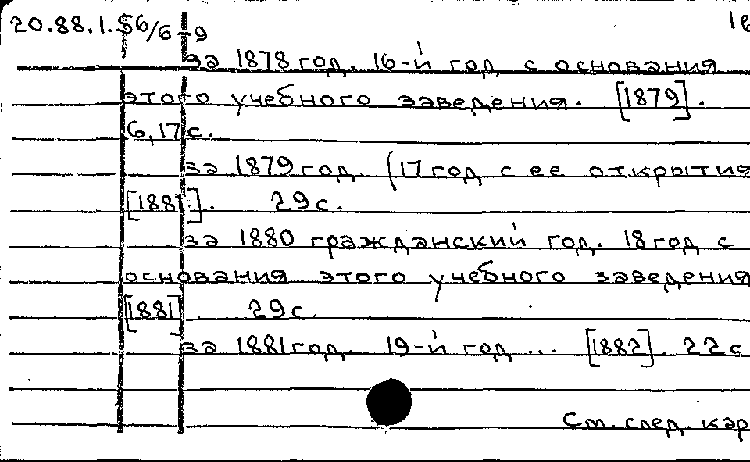 20.88.1.56/6-9 16
за 1878 год. 16-й год с основания
этого учебного заведения. [1879].
6,17 с.
за 1879 год. (17 год с ее открытия
[1881]. 29 с.
за 1880 гражданский год. 18 год с
основания этого учебного заведения
[1881]. 29 с.
за 1881 год. 19-й год ... [1882]. 22 с
См. след. кар